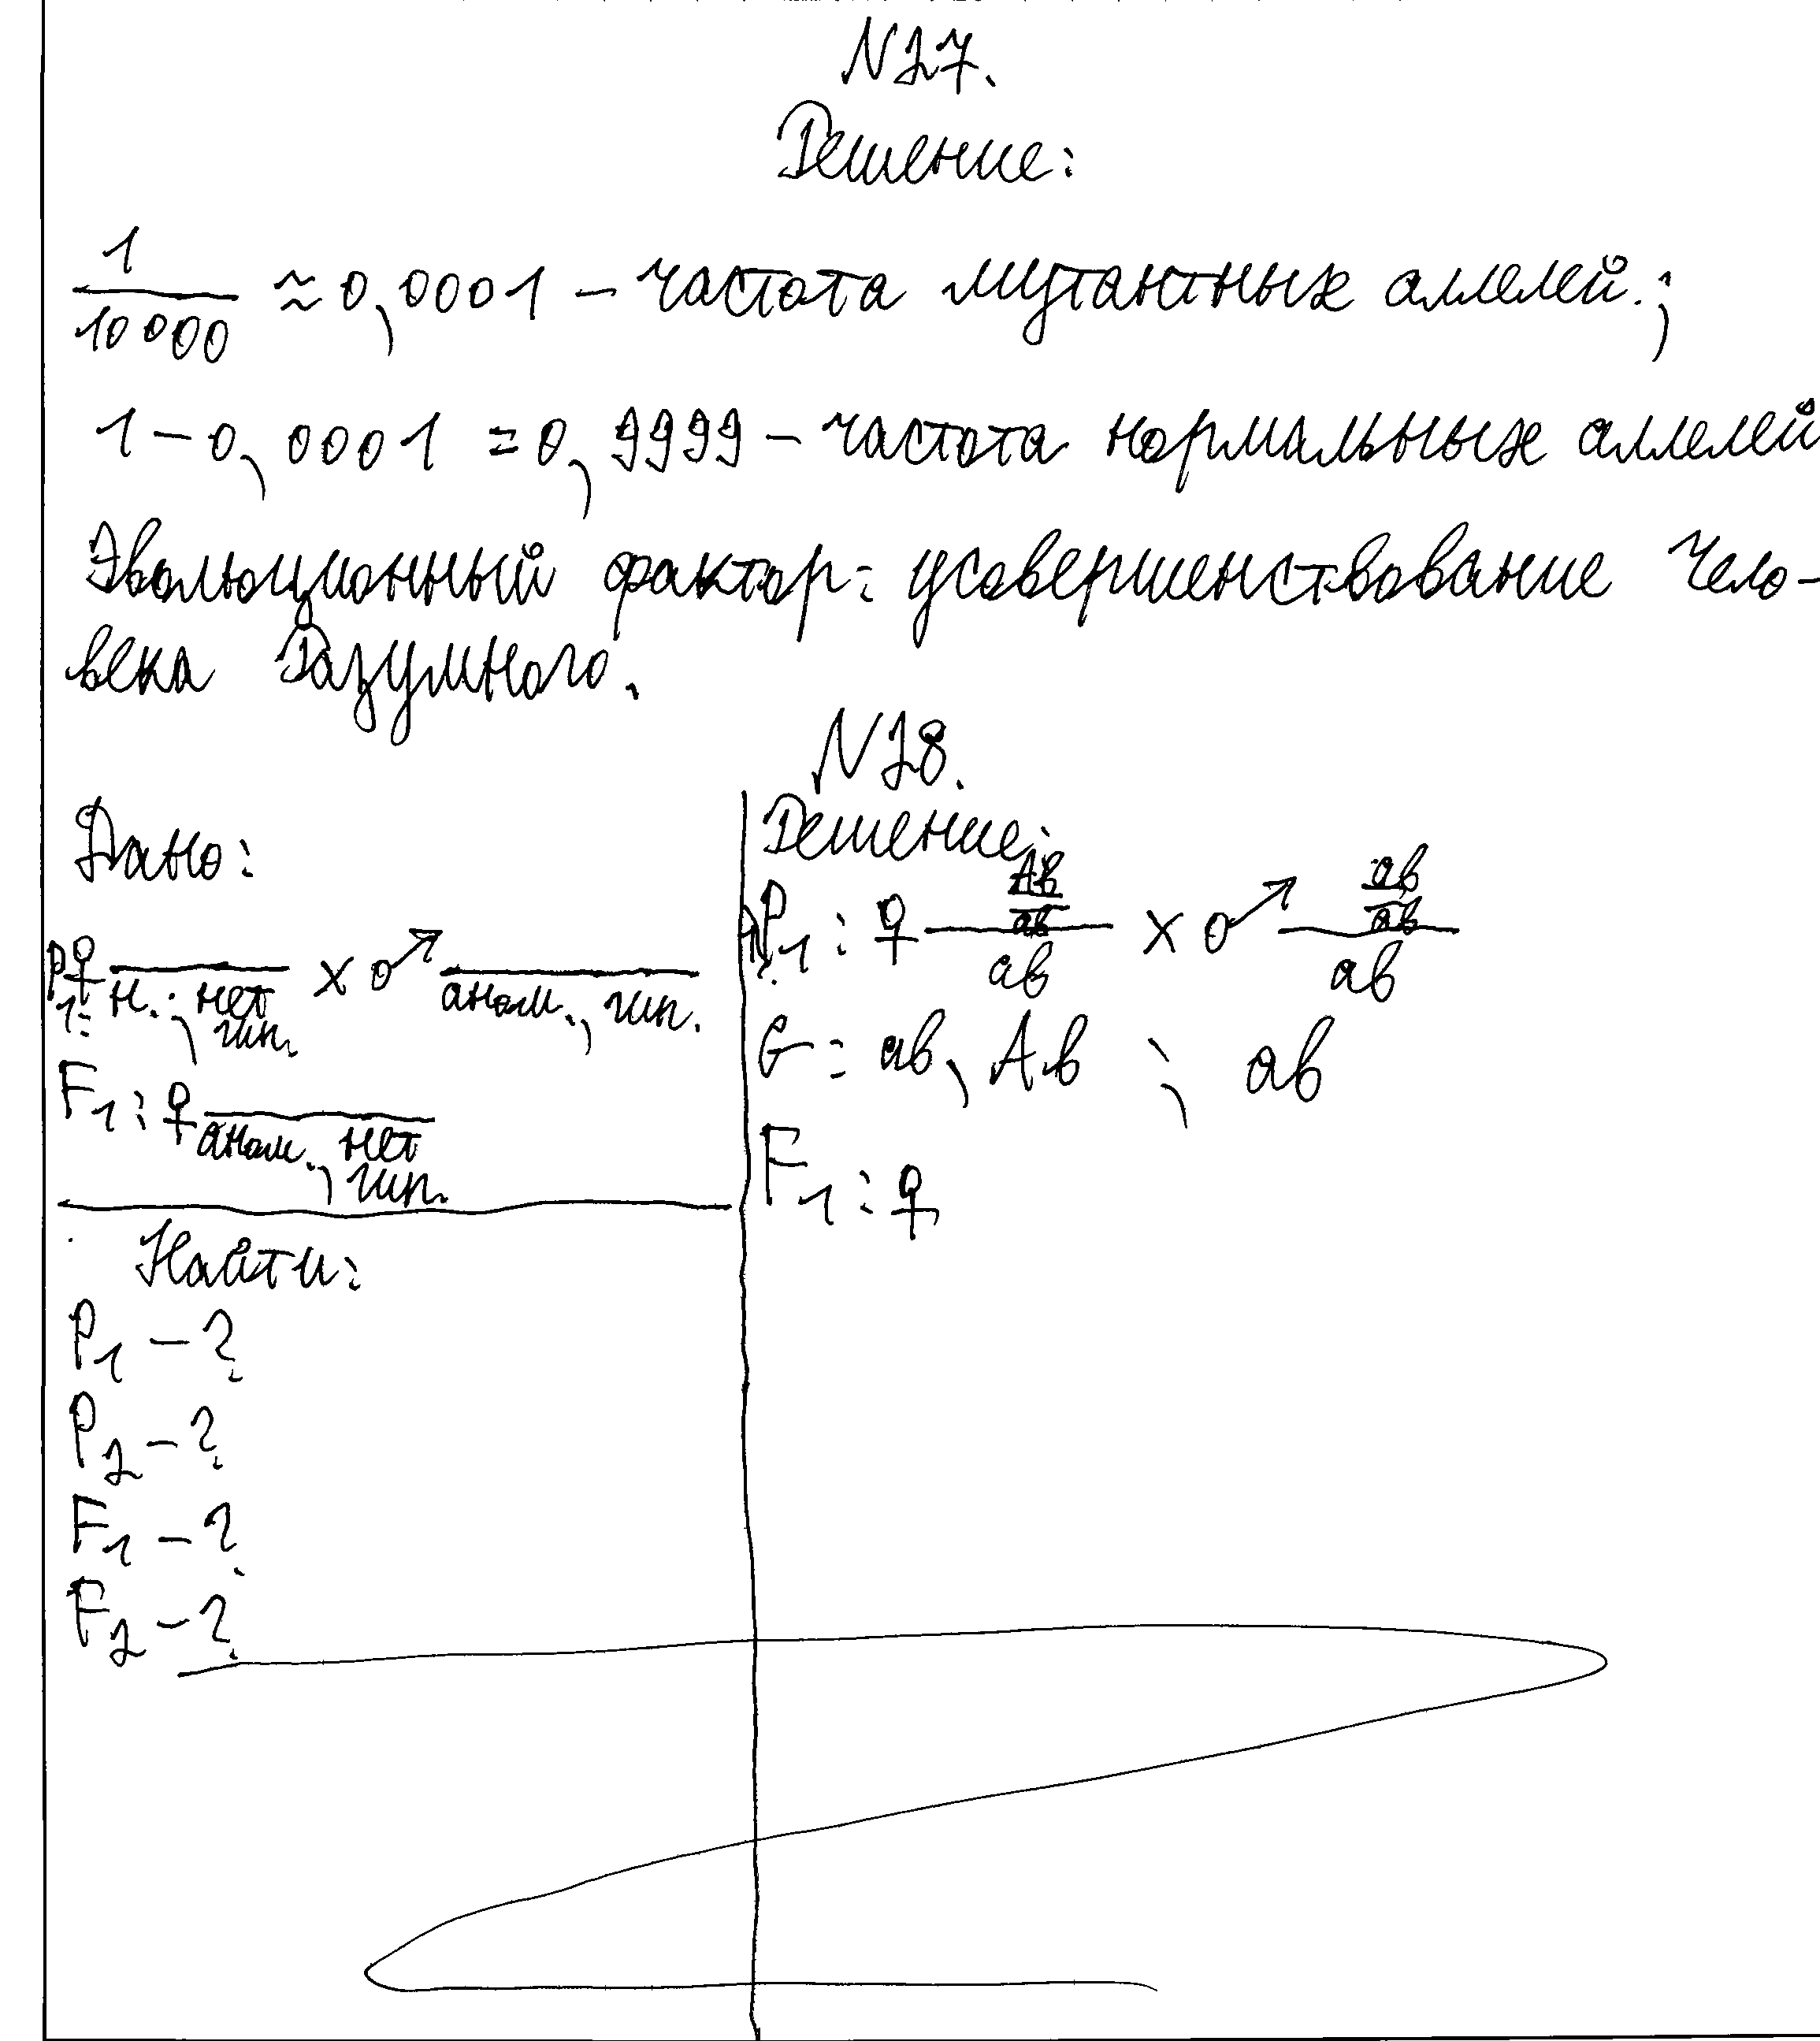 N27.
Решение:
1
10000
≈ 0,0001 - частота мутантных аллелей.;
1 - 0,0001 = 0,9999 - частота нормальных аллелей
Эволюционный фактор: усовершенствование Чело-
века Разумного.
N28.
Дано:
P1: ♀ н.; нет гип. x ♂ аном.; гип.
F1: ♀ аном.; нет гип.
Найти:
P1 - ?
P2 - ?
F1 - ?
F2 - ?
Решение:
P1: ♀ ав x ♂ ав
G: ав, Ав ; ав
F1: ♀